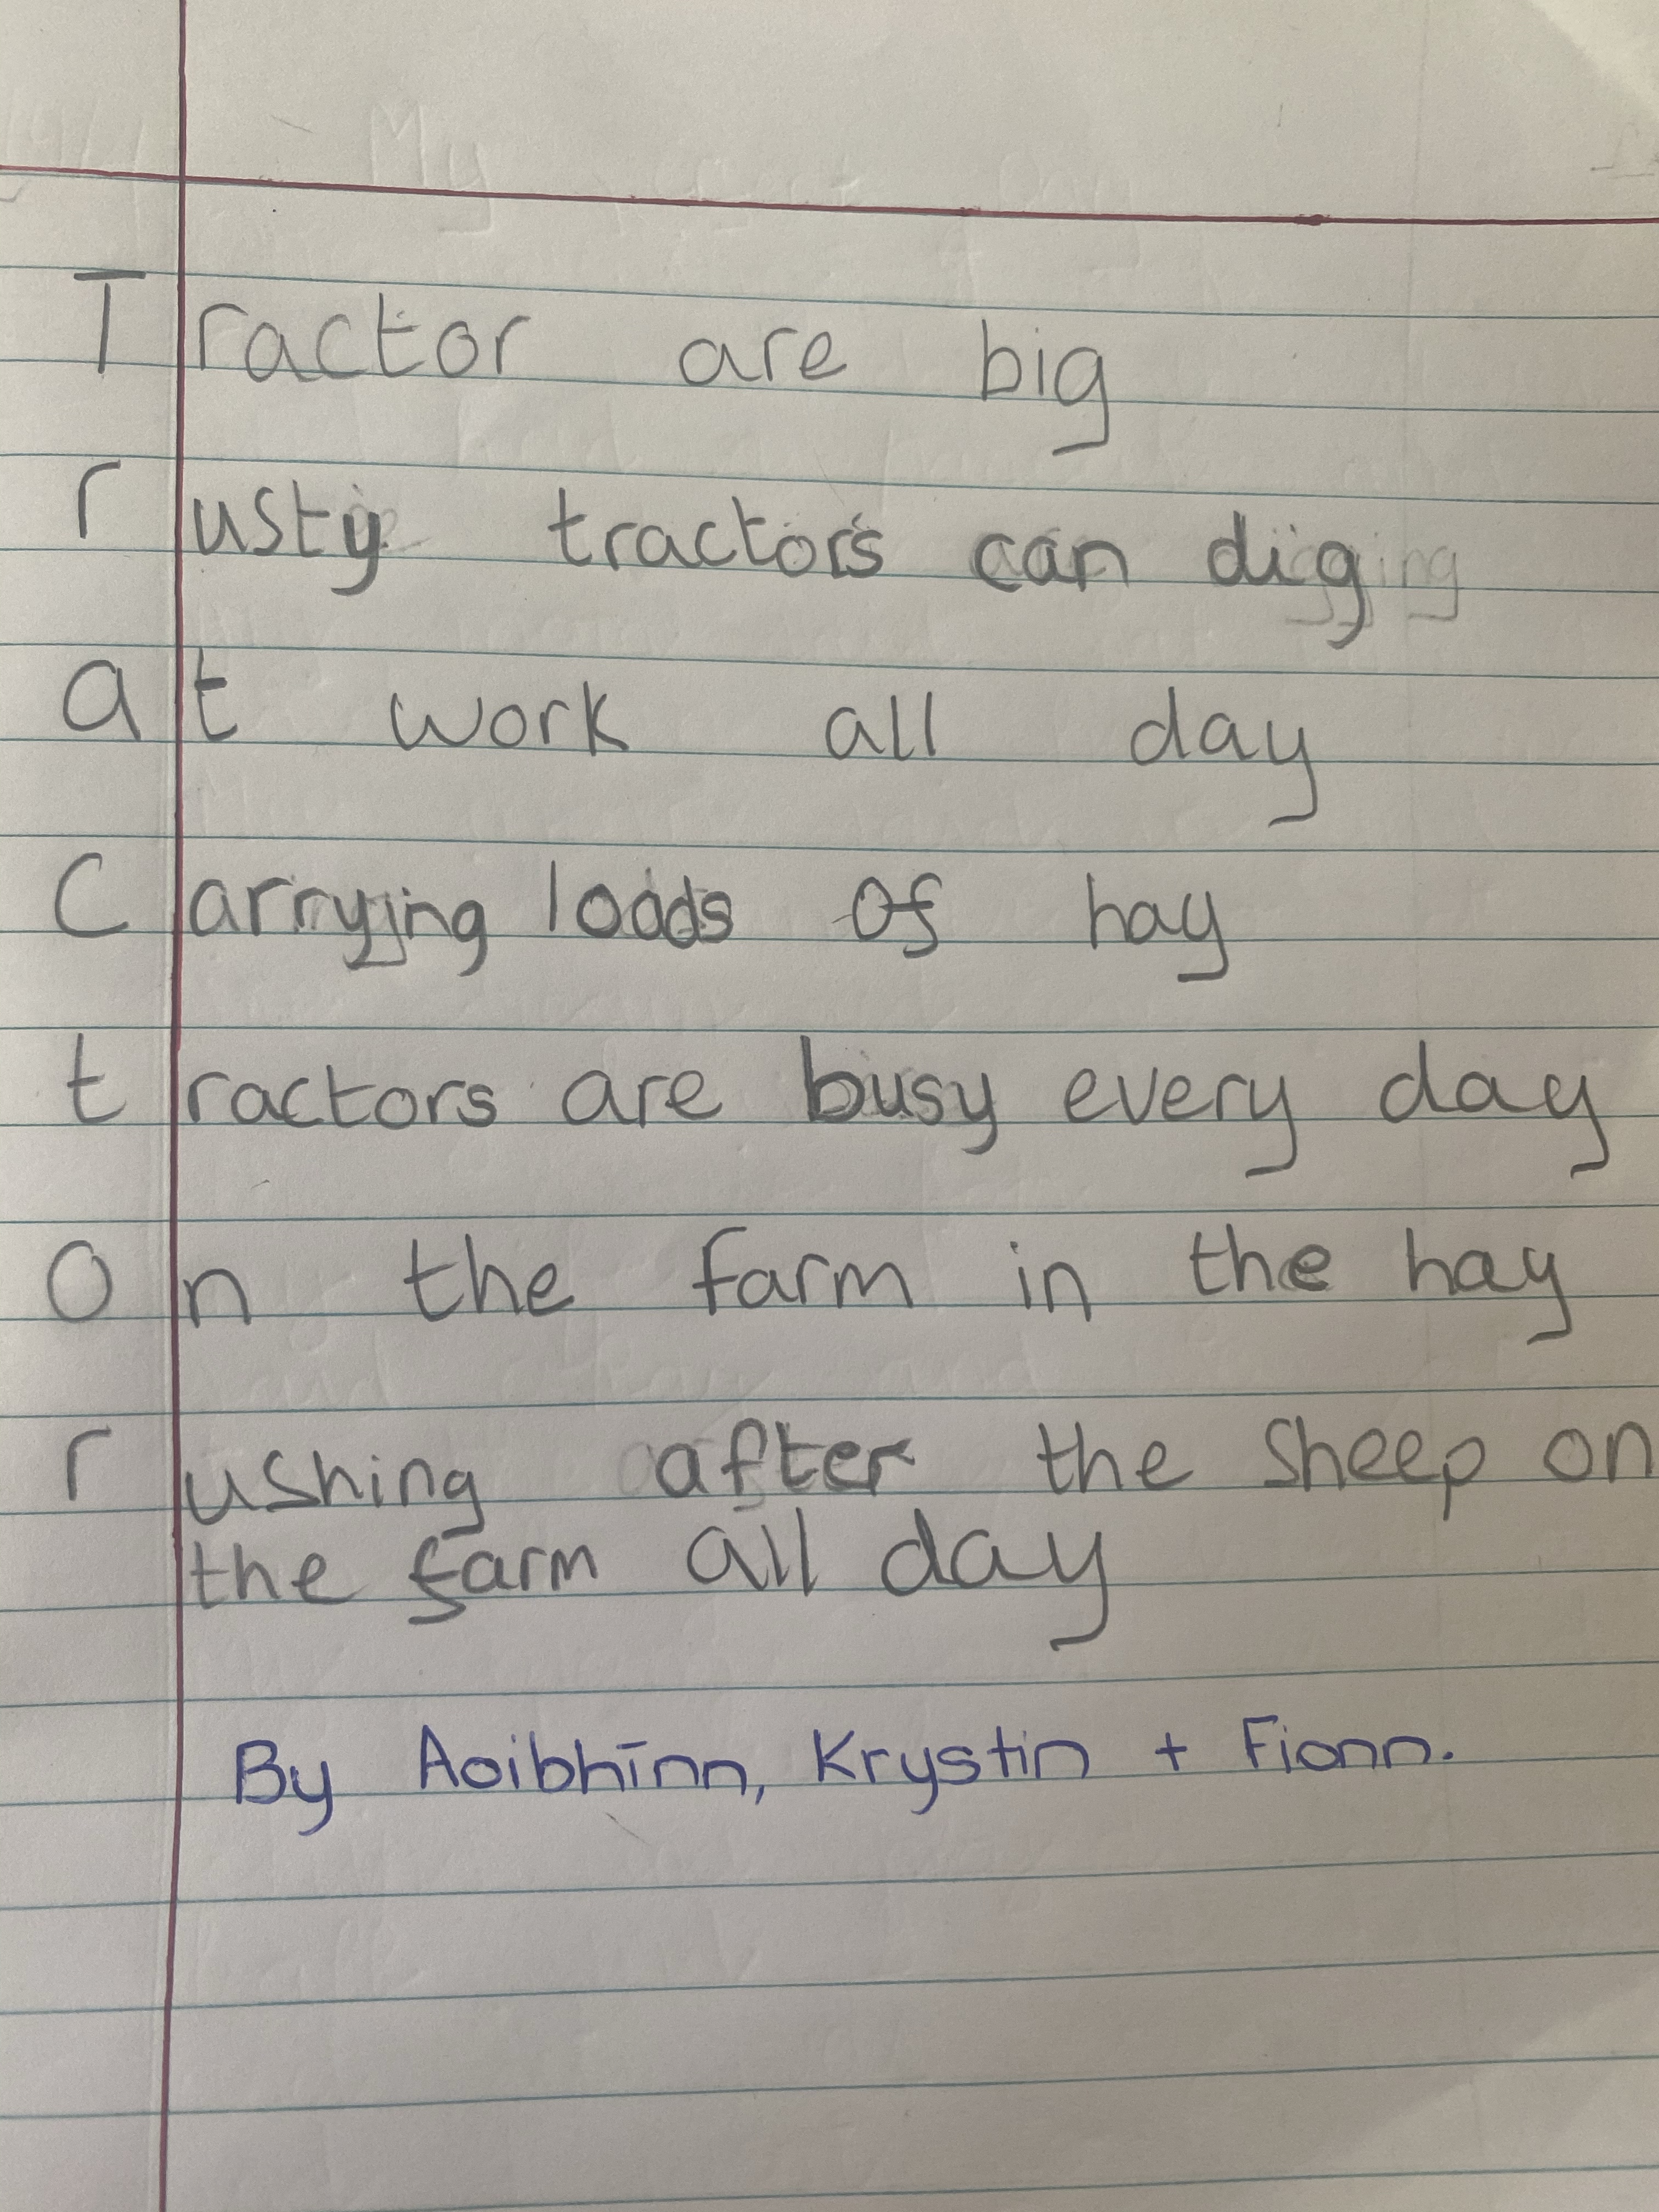 Tractor are big
rusty tractors can dig
at work all day
Carrying loads of hay
tractors are busy every day
On the farm in the hay
rushing after the sheep on
the farm all day
By Aoibhīnn, Krystin + Fionn.